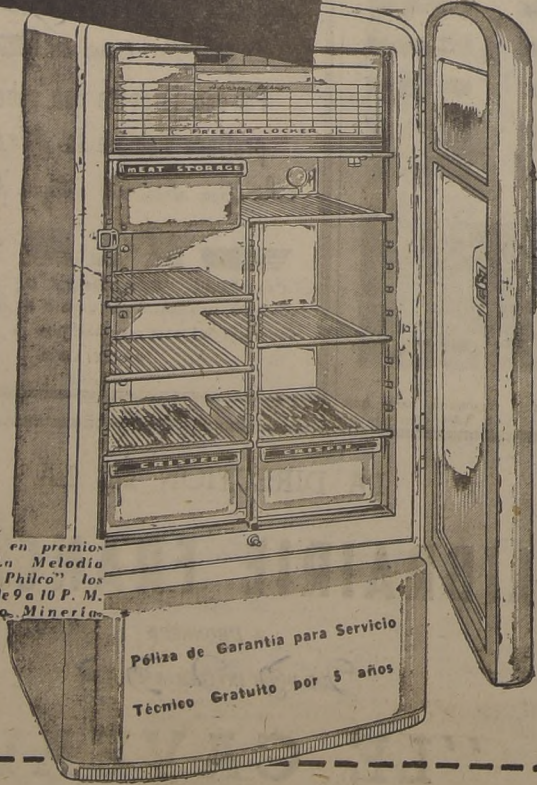 Advanced Design
FREEZER LOCKER
MEAT STORAGE
CRISPER
CRISPER
en premios
Melodía
Philco" los
de 9 a 10 P. M.
Minería.
Póliza de Garantía para Servicio
Técnico Gratuito por 5 años